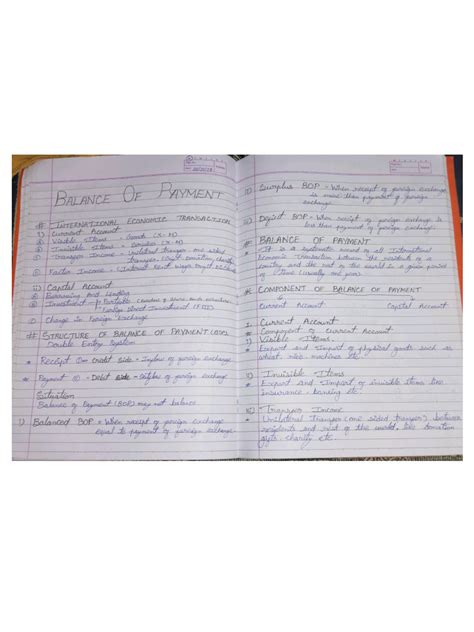 BALANCE OF PAYMENT
# INTERNATIONAL ECONOMIC TRANSACTION
i) Current Account
Visible Items Goods (X-M)
Invisible Items - Services (X-M)
Transfer Income - Unilateral transfer one sided
Factor Income - (Interest Rent wages
ii) Capital Account
Borrowing and Lending
Investment
Foreign Direct Investment (FDI)
Change in Foreign Exchange
# STRUCTURE OF BALANCE OF PAYMENT
Double Entry System
Receipt Credit side - Inflow of foreign exchange
Payment Debit side - Outflow of foreign exchange
Situation
Balance of Payment (BOP) may not balance
i) Balanced BOP = When receipt of foreign exchange
equal to payment of foreign exchange
ii) Surplus BOP = When receipt of foreign exchange
is more than payment of foreign
exchange
iii) Deficit BOP = When receipt of foreign exchange is
less than payment of foreign exchange
# BALANCE OF PAYMENT
It is a systematic record of all International
Economic Transaction between the residents of a
country and the rest of the world in a given period
of time (usually one year)
# COMPONENT OF BALANCE OF PAYMENT
Current Account Capital Account
1. Current Account
Component of Current Account
i) Visible Items
Export and Import of physical goods such as
machines etc.
ii) Invisible Items
Export and Import of invisible items like
insurance, banking etc.
Transfer Income
Unilateral Transfer (one sided transfer) between
residents and rest of the world, like donation
gifts, charity etc.